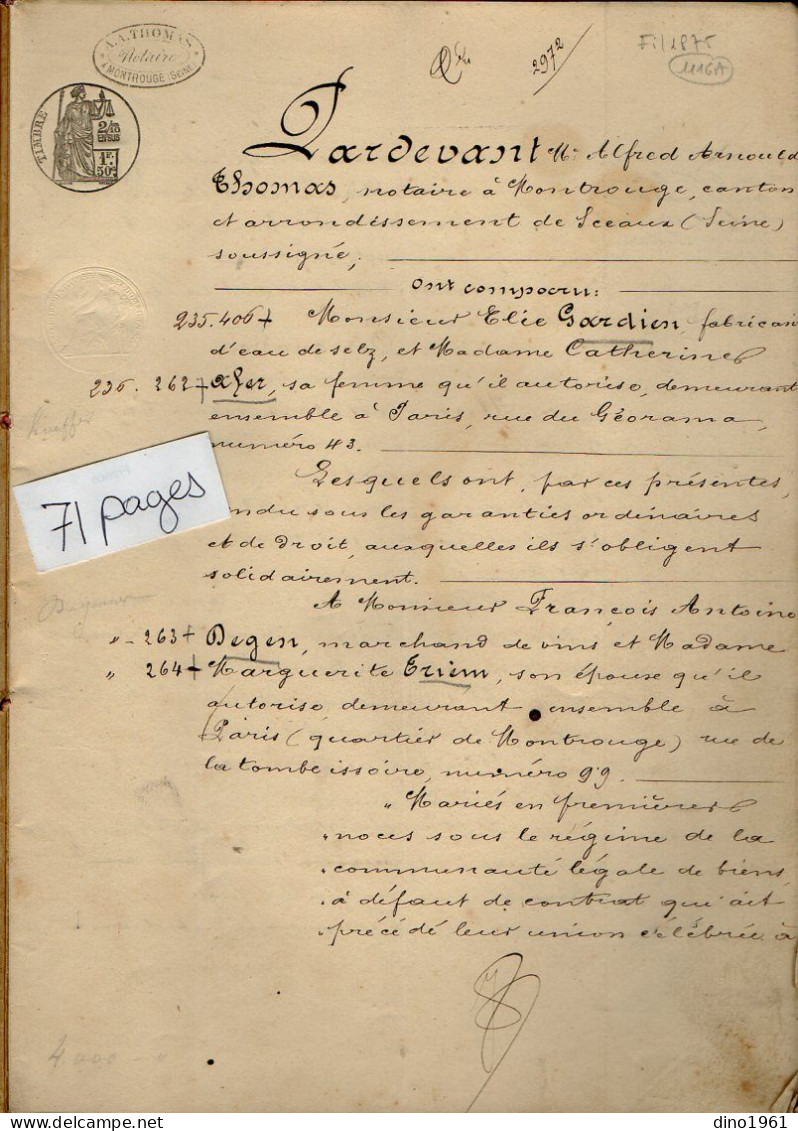 A.A.THOMAS
Notaire
A MONTROUGE (SEINE)
2972
Fi/1875
1116A
TIMBRE
2/10
EN SUS
1F.
50c
Pardevant Me Alfred Arnould
Thomas, notaire à Montrouge, canton
et arrondissement de Sceaux (Seine)
soussigné;
Ont comparu:
235.406 + Monsieur Elie Gardien, fabricant
d'eau de selz, et Madame Catherine
236. 262 + Xfer, sa femme qu'il autorise, demeurant
ensemble à Paris, rue du Géorama,
numéro 43.
71 pages
Lesquels ont, par ces présentes,
vendu sous les garanties ordinaires
et de droit, auxquelles ils s'obligent
solidairement.
A Monsieur François Antoine
" - 263 + Degen, marchand de vins et Madame
" 264 + Marguerite Eriem, son épouse qu'il
autorise, demeurant ensemble à
Paris (quartier de Montrouge) rue de
la tombe issoire, numéro 99.
" Mariés en premières
" noces sous le régime de la
" communauté légale de biens
" à défaut de contrat qui ait
" précédé leur union célébrée à
4000 - "
dino1961